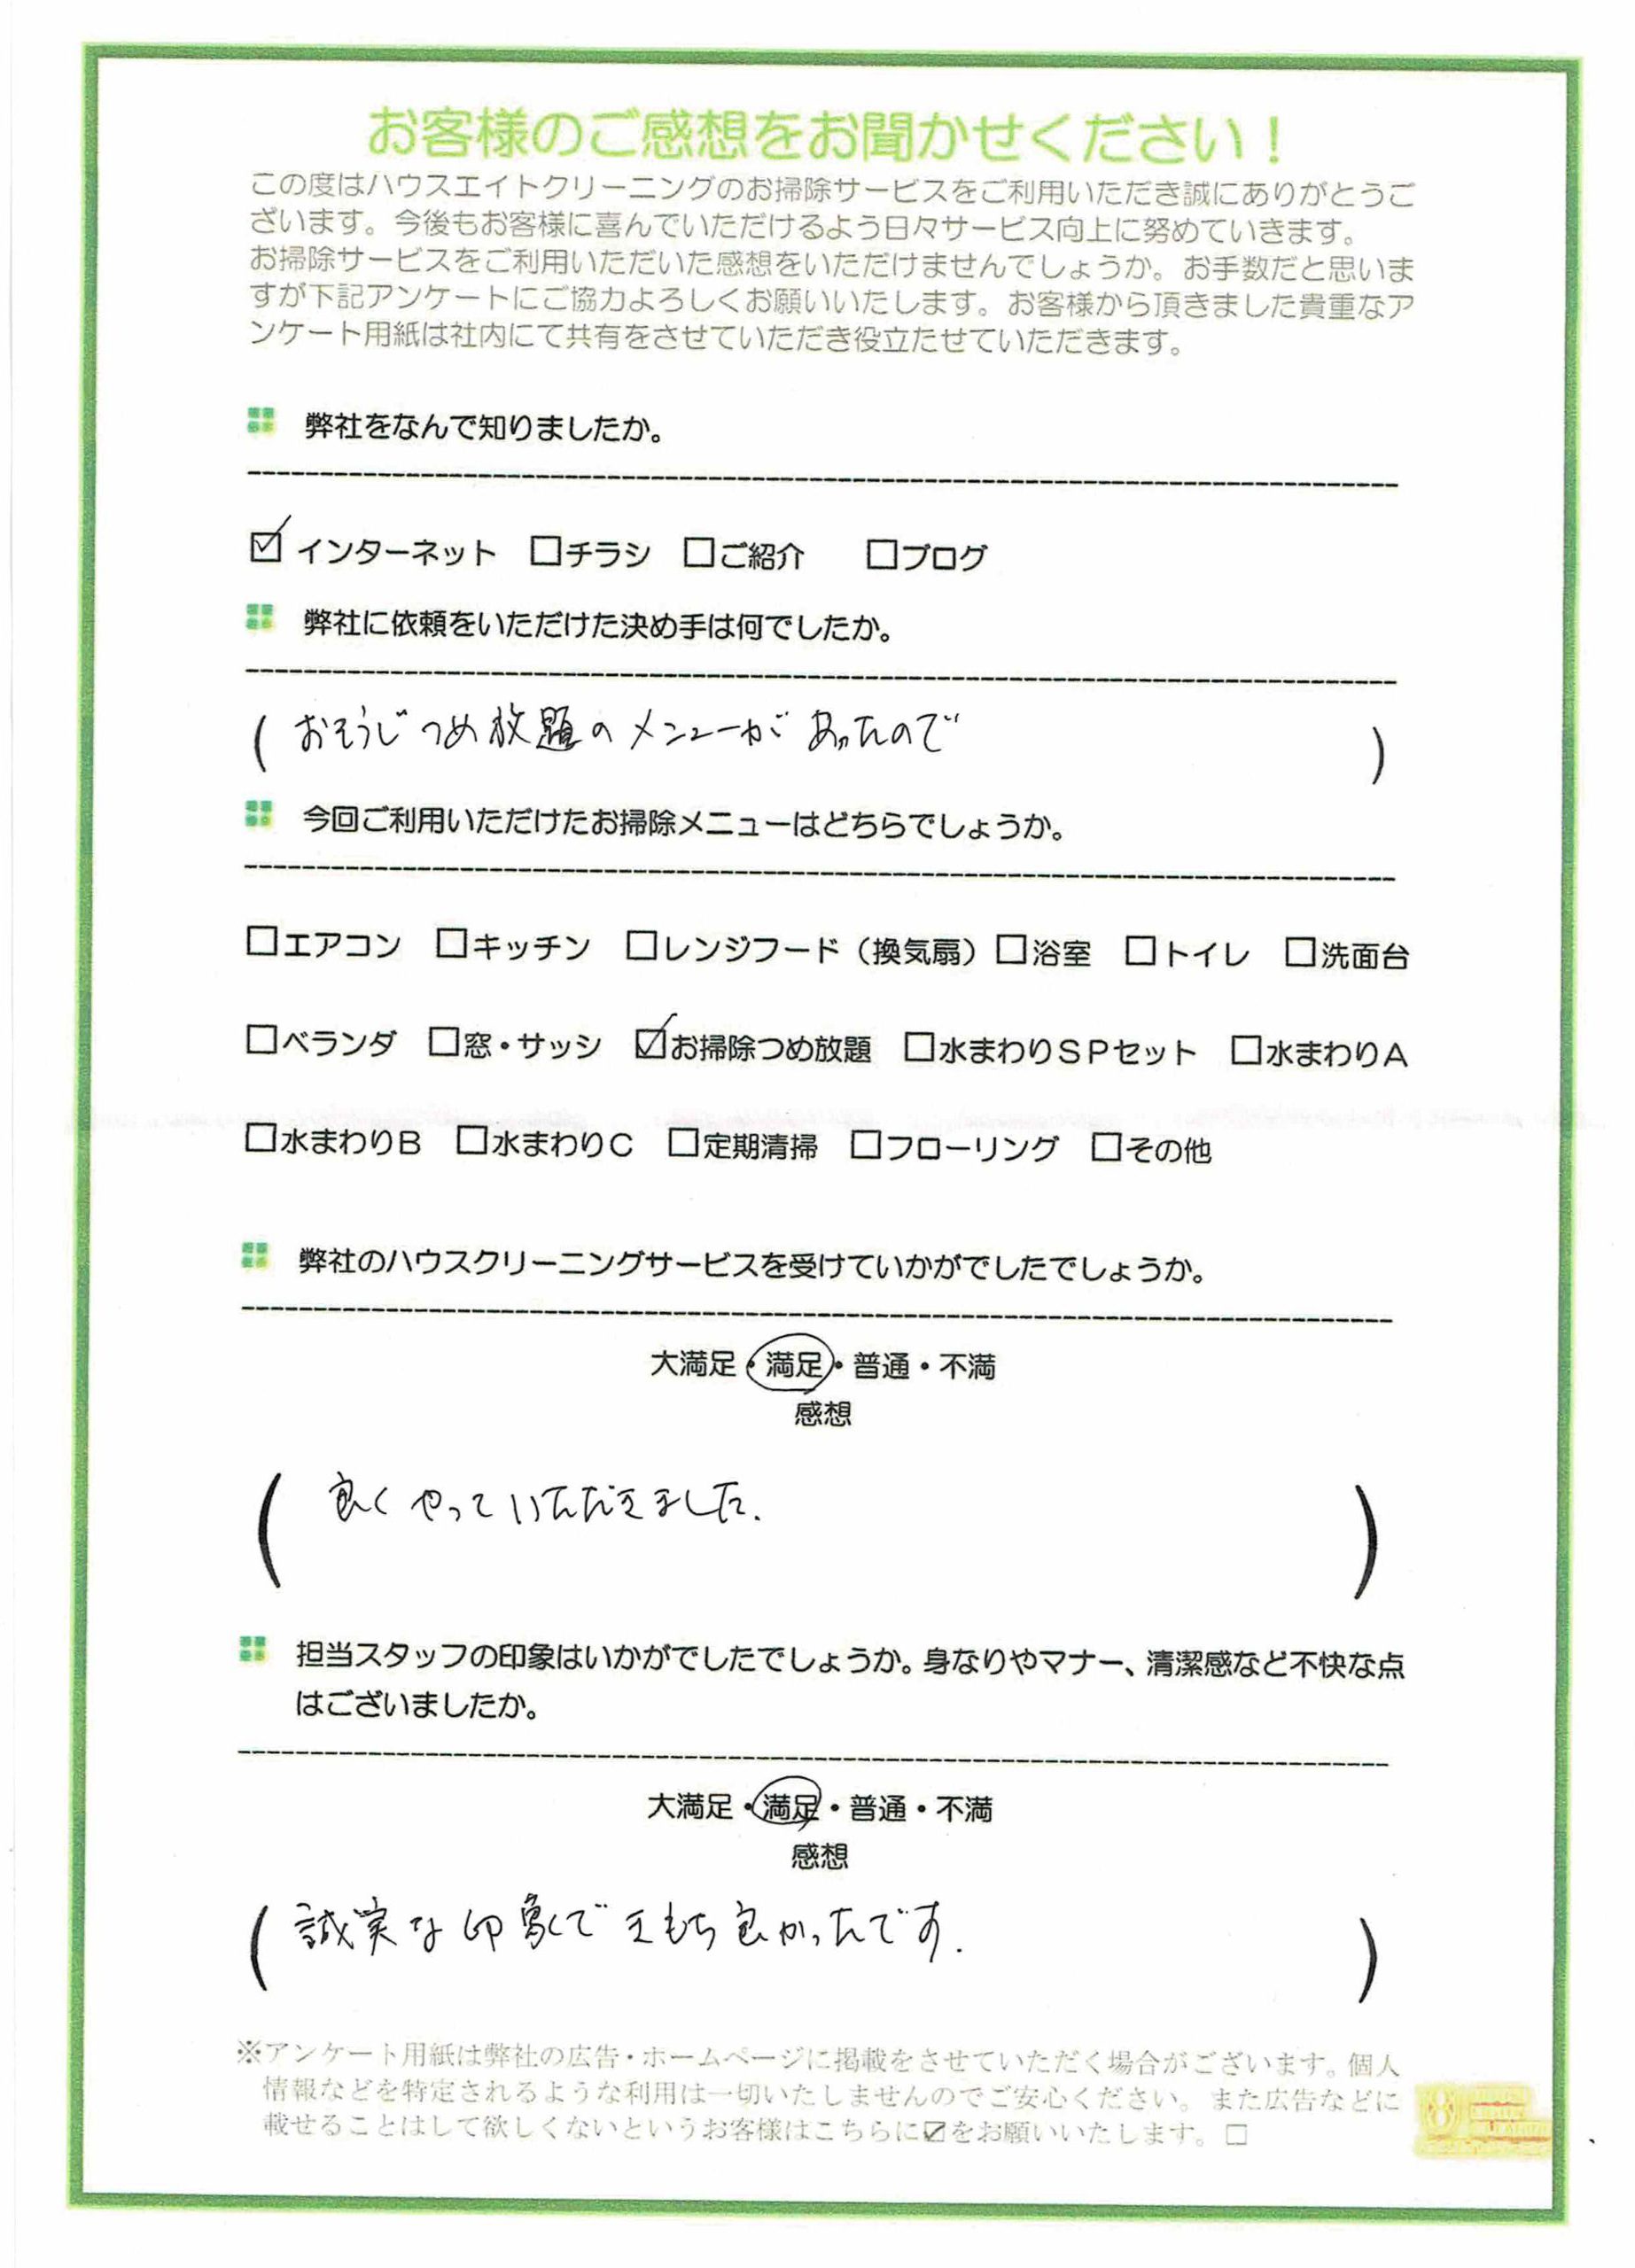 お客様のご感想をお聞かせください！
この度はハウスエイトクリーニングのお掃除サービスをご利用いただき誠にありがとうご
ざいます。今後もお客様に喜んでいただけるよう日々サービス向上に努めていきます。
お掃除サービスをご利用いただいた感想をいただけませんでしょうか。お手数だと思いま
すが下記アンケートにご協力よろしくお願いいたします。お客様から頂きました貴重なア
ンケート用紙は社内にて共有をさせていただき役立たせていただきます。
弊社をなんで知りましたか。
☑インターネット □チラシ □ご紹介 □ブログ
弊社に依頼をいただけた決め手は何でしたか。
(おそうじつめ放題のメニューがあったので)
今回ご利用いただけたお掃除メニューはどちらでしょうか。
□エアコン □キッチン □レンジフード（換気扇）□浴室 □トイレ □洗面台
□ベランダ □窓・サッシ ☑お掃除つめ放題 □水まわりＳＰセット □水まわりＡ
□水まわりＢ □水まわりＣ □定期清掃 □フローリング □その他
弊社のハウスクリーニングサービスを受けていかがでしたでしょうか。
大満足・満足・普通・不満
感想
(良くやっていただきました.)
担当スタッフの印象はいかがでしたでしょうか。身なりやマナー、清潔感など不快な点
はございましたか。
大満足・満足・普通・不満
感想
(誠実な印象できもち良かったです.)
※アンケート用紙は弊社の広告・ホームページに掲載をさせていただく場合がございます。個人
情報などを特定されるような利用は一切いたしませんのでご安心ください。また広告などに
載せることはして欲しくないというお客様はこちらに☑をお願いいたします。□